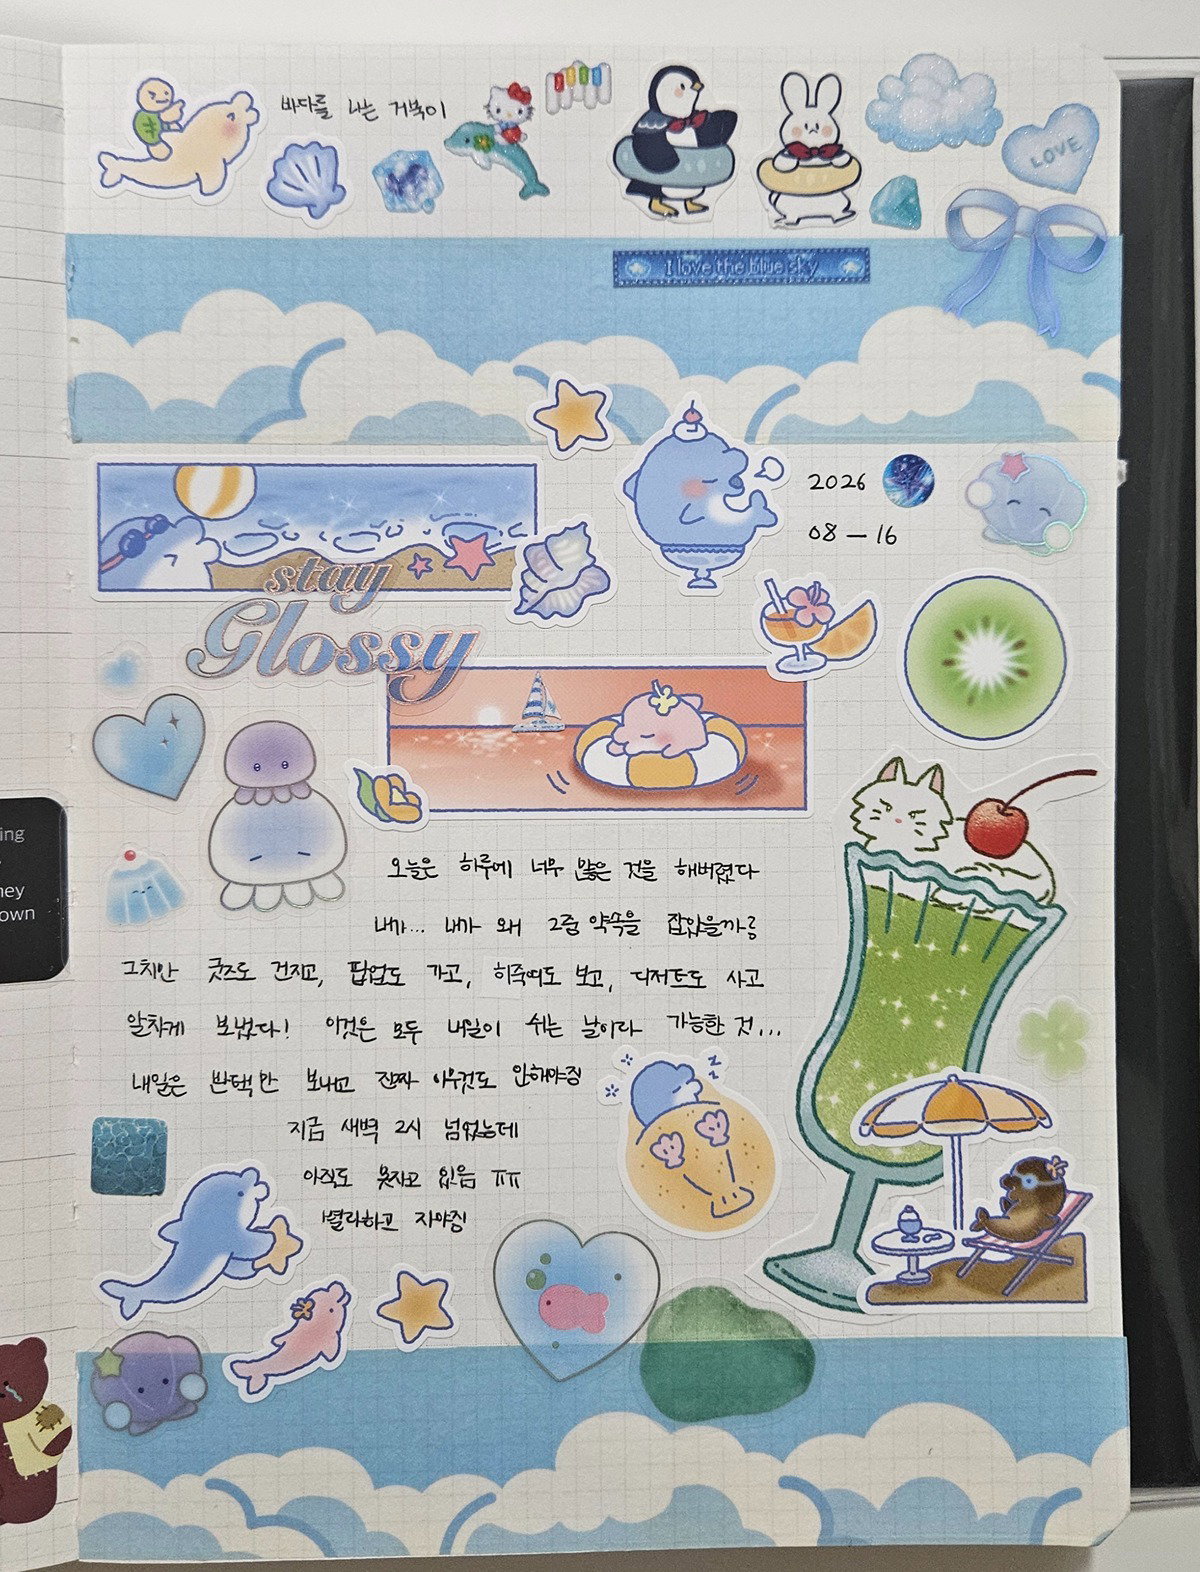 바다를 나는 거북이
LOVE
I love the blue sky
2026
08 - 16
stay
Glossy
오늘은 하루에 너무 많은 것을 해버렸다
내가... 내가 왜 2중 약속을 잡았을까ㅎ
그치만 굿즈도 건지고, 팝업도 가고, 히죽여도 보고, 디저트도 사고
알차게 보냈다! 이것은 모두 내일이 쉬는 날이라 가능한 것...
내일은 반택만 보내고 진짜 아무것도 안해야징
지금 새벽 2시 넘었는데
아직도 못자고 있음 ㅠㅠ
빨리하고 자야징
z z z
ing
ney
own